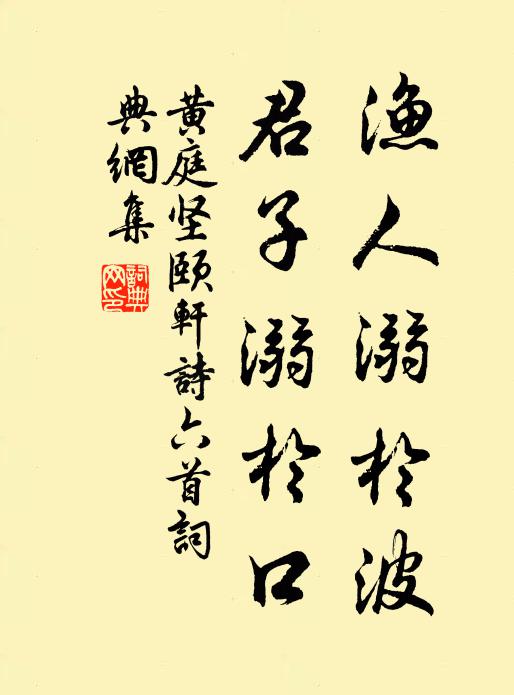 漁人溺於波
君子溺於口
黄庭坚頤軒詩六首詞
典網集
詞典
网印